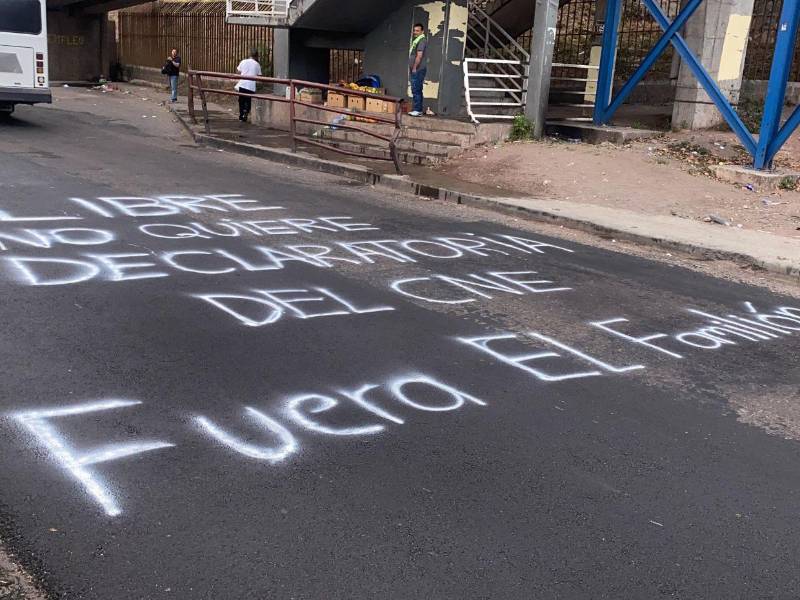 LIBRE
NO QUIERE
DECLARATORIA
DEL CNE
Fuera EL Familión